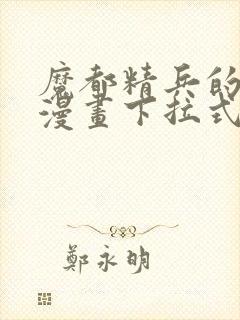 魔都精兵的
漫畫下拉式
鄭永明